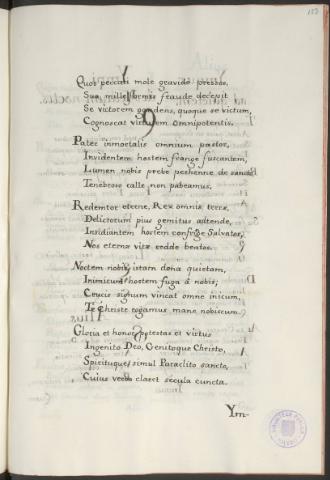 153
Quos peccati mole gravido pressos,
Sua mille formis fraude decepit
Se victorem ogndens, quoque se victum,
Cognoscat virtutem omnipotentis.
Pater inmortalis omnium pastor,
Invidentem hostem frange fuscantem,
Lumen nobis prebe perhenne de
Tenebroso calle non pabeamus.
Redemtor eterne, Rex omnis terræ,
Delictorum pius gemitus adtende,
Insidiantem hostem confrige Salvator,
Nos eternæ vitæ redde beatos.
Noctem nobis istam dona quietam,
Inimicum hostem fuga á nobis,
Crucis signum vincat omne inicum,
Te Christe rogamus mane nobiscum.
Gloria et honor, potestas et virtus
Ingenito Deo, Genitoque Christo,
Spirituque simul Paraclito sancto,
Cuius verbo claret secula cuncta.
Ym-